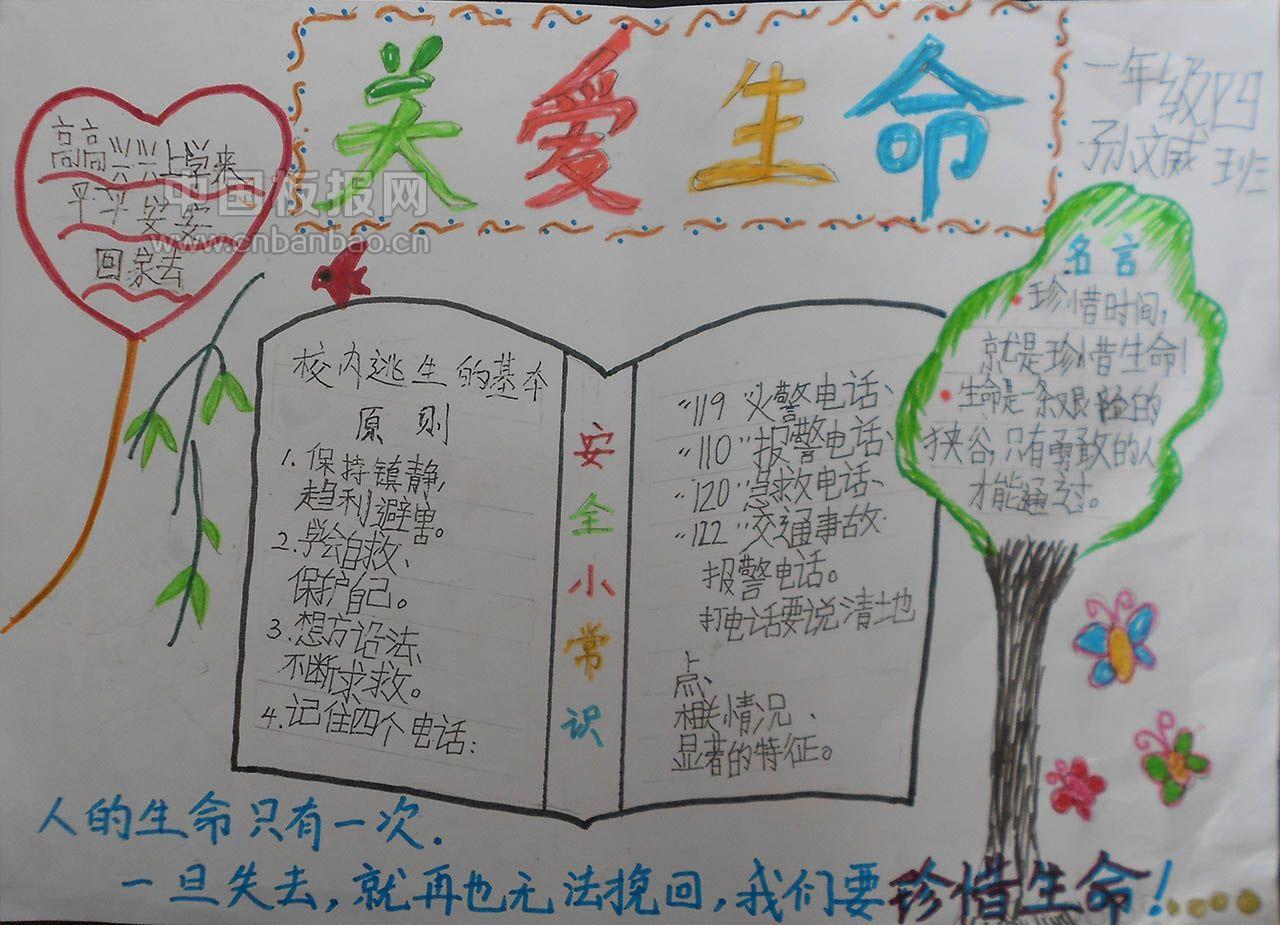 关爱生命
一年级四班
孙文威
高高兴兴上学来
平平安安
回家去
中国板报网
www.cnbanbao.cn
校内逃生的基本
原则
1.保持镇静,
趋利避害。
2.学会自救、
保护自己。
3.想方设法、
不断求救。
4.记住四个电话:
安全小常识
“119”火警电话、
“110”报警电话、
“120”急救电话、
“122”交通事故
报警电话。
打电话要说清地
点、
相关情况、
显著的特征。
名言
珍惜时间,
就是珍惜生命!
生命是一条艰险的
狭谷,只有勇敢的人
才能通过。
人的生命只有一次.
一旦失去,就再也无法挽回,我们要珍惜生命!